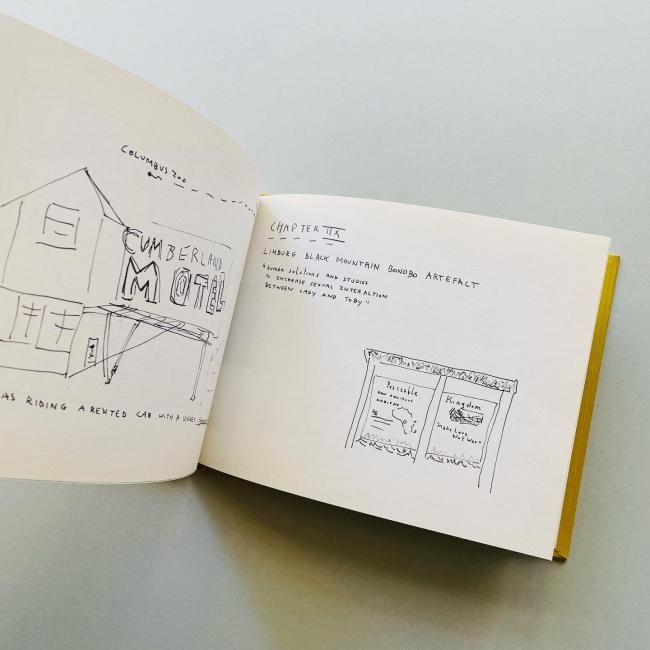 COLUMBUS ZOO
CUMBERLAND
MOTEL
AS RIDING A RENTED CAR WITH A
CHAPTER
LIMBURG BLACK MOUNTAIN BONOBO ARTEFALT
"human solutions AND STUDIES
TO INCREASE SEXUAL INTERACTION
BETWEEN LADY AND TOBY"
Peaceable
Kingdom
"Make Love
Not War"